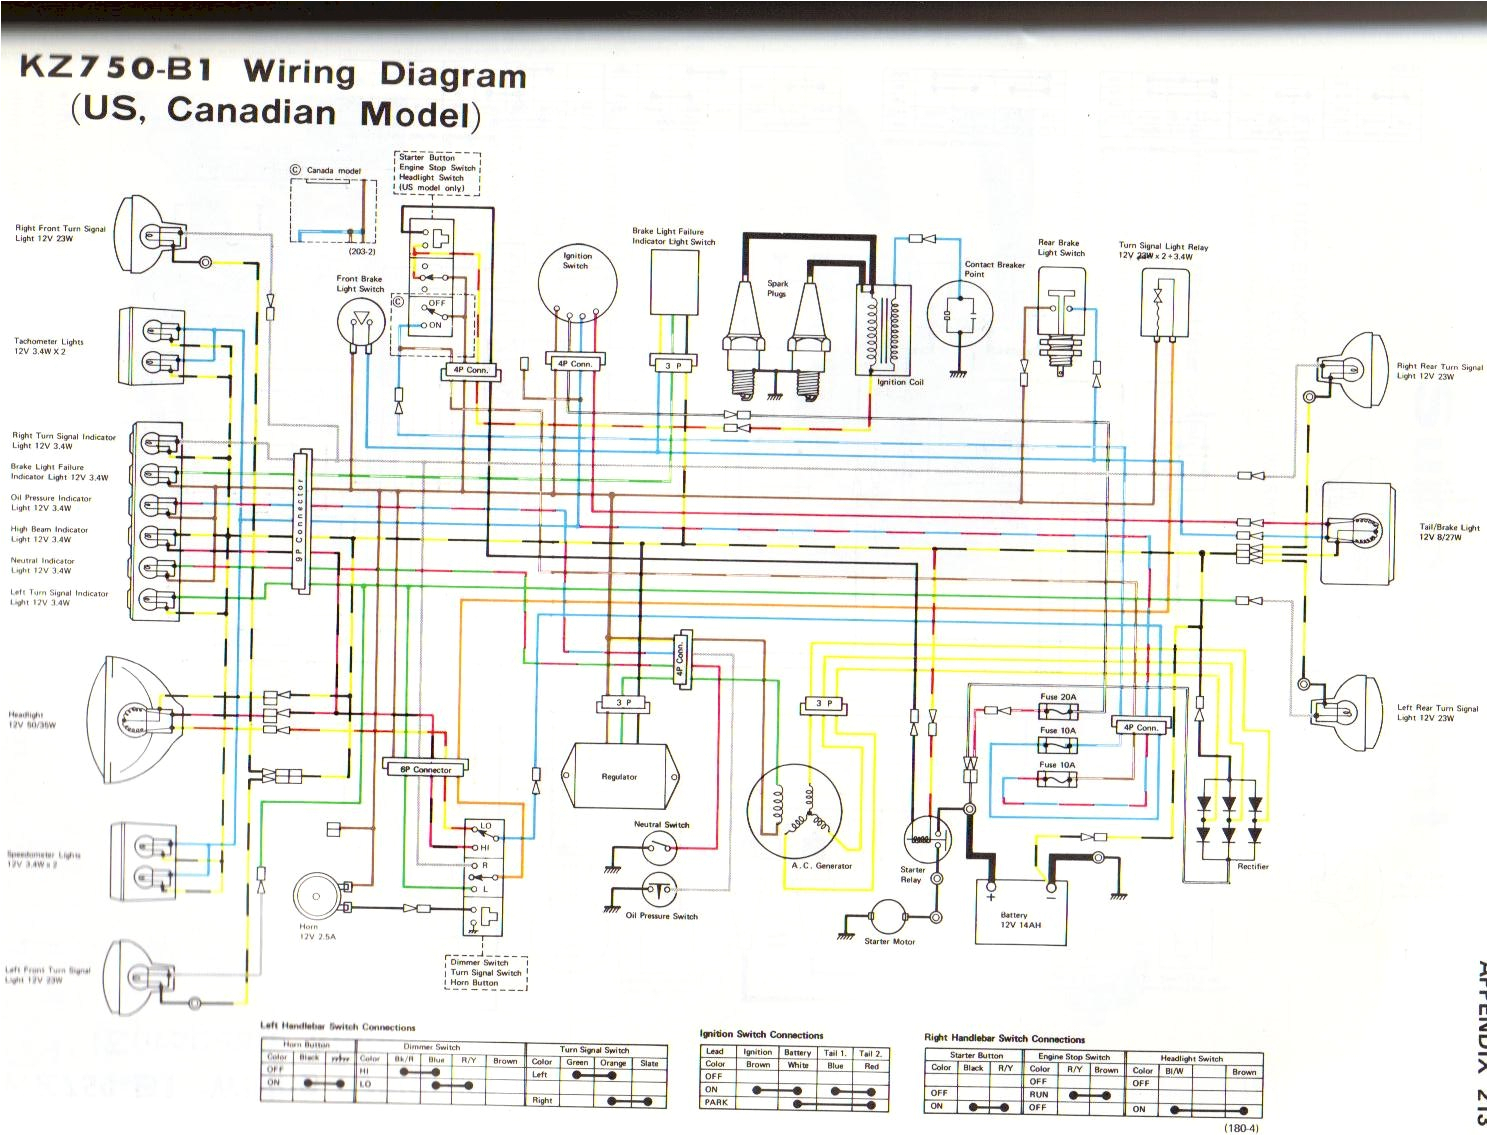 KZ750-B1 Wiring Diagram
(US, Canadian Model)
© Canada model
(203-2)
Starter Button
Engine Stop Switch
Headlight Switch
(US model only)
Right Front Turn Signal
Light 12V 23W
Front Brake
Light Switch
©
OFF
ON
4P Conn.
Ignition
Switch
4P Conn.
Brake Light Failure
Indicator Light Switch
3 P
Spark
Plugs
Ignition Coil
Contact Breaker
Point
Rear Brake
Light Switch
Turn Signal Light Relay
12V 23W x 2 + 3.4W
Right Rear Turn Signal
Light 12V 23W
Tachometer Lights
12V 3.4W X 2
Right Turn Signal Indicator
Light 12V 3.4W
Brake Light Failure
Indicator Light 12V 3.4W
Oil Pressure Indicator
Light 12V 3.4W
High Beam Indicator
Light 12V 3.4W
Neutral Indicator
Light 12V 3.4W
Left Turn Signal Indicator
Light 12V 3.4W
9P Connector
Tail/Brake Light
12V 8/27W
Headlight
12V 50/35W
4P Conn.
3 P
3 P
Regulator
6P Connector
Fuse 20A
Fuse 10A
Fuse 10A
4P Conn.
Left Rear Turn Signal
Light 12V 23W
Speedometer Lights
12V 3.4W x 2
LO
HI
R
L
Neutral Switch
Oil Pressure Switch
A.C. Generator
Starter
Relay
Starter Motor
+
−
Battery
12V 14AH
Rectifier
Horn
12V 2.5A
Left Front Turn Signal
Light 12V 23W
Dimmer Switch
Turn Signal Switch
Horn Button
Left Handlebar Switch Connections
Horn Button
Color Black
OFF
ON
Dimmer Switch
Color Bk/R Blue R/Y Brown
HI
LO
Turn Signal Switch
Color Green Orange Slate
Left
Right
Ignition Switch Connections
Lead Ignition Battery Tail 1. Tail 2.
Color Brown White Blue Red
OFF
ON
PARK
Right Handlebar Switch Connections
Starter Button
Color Black R/Y
OFF
ON
Engine Stop Switch
Color R/Y Brown
OFF
RUN
OFF
Headlight Switch
Color Bl/W Brown
OFF
ON
(180-4)
APPENDIX 213